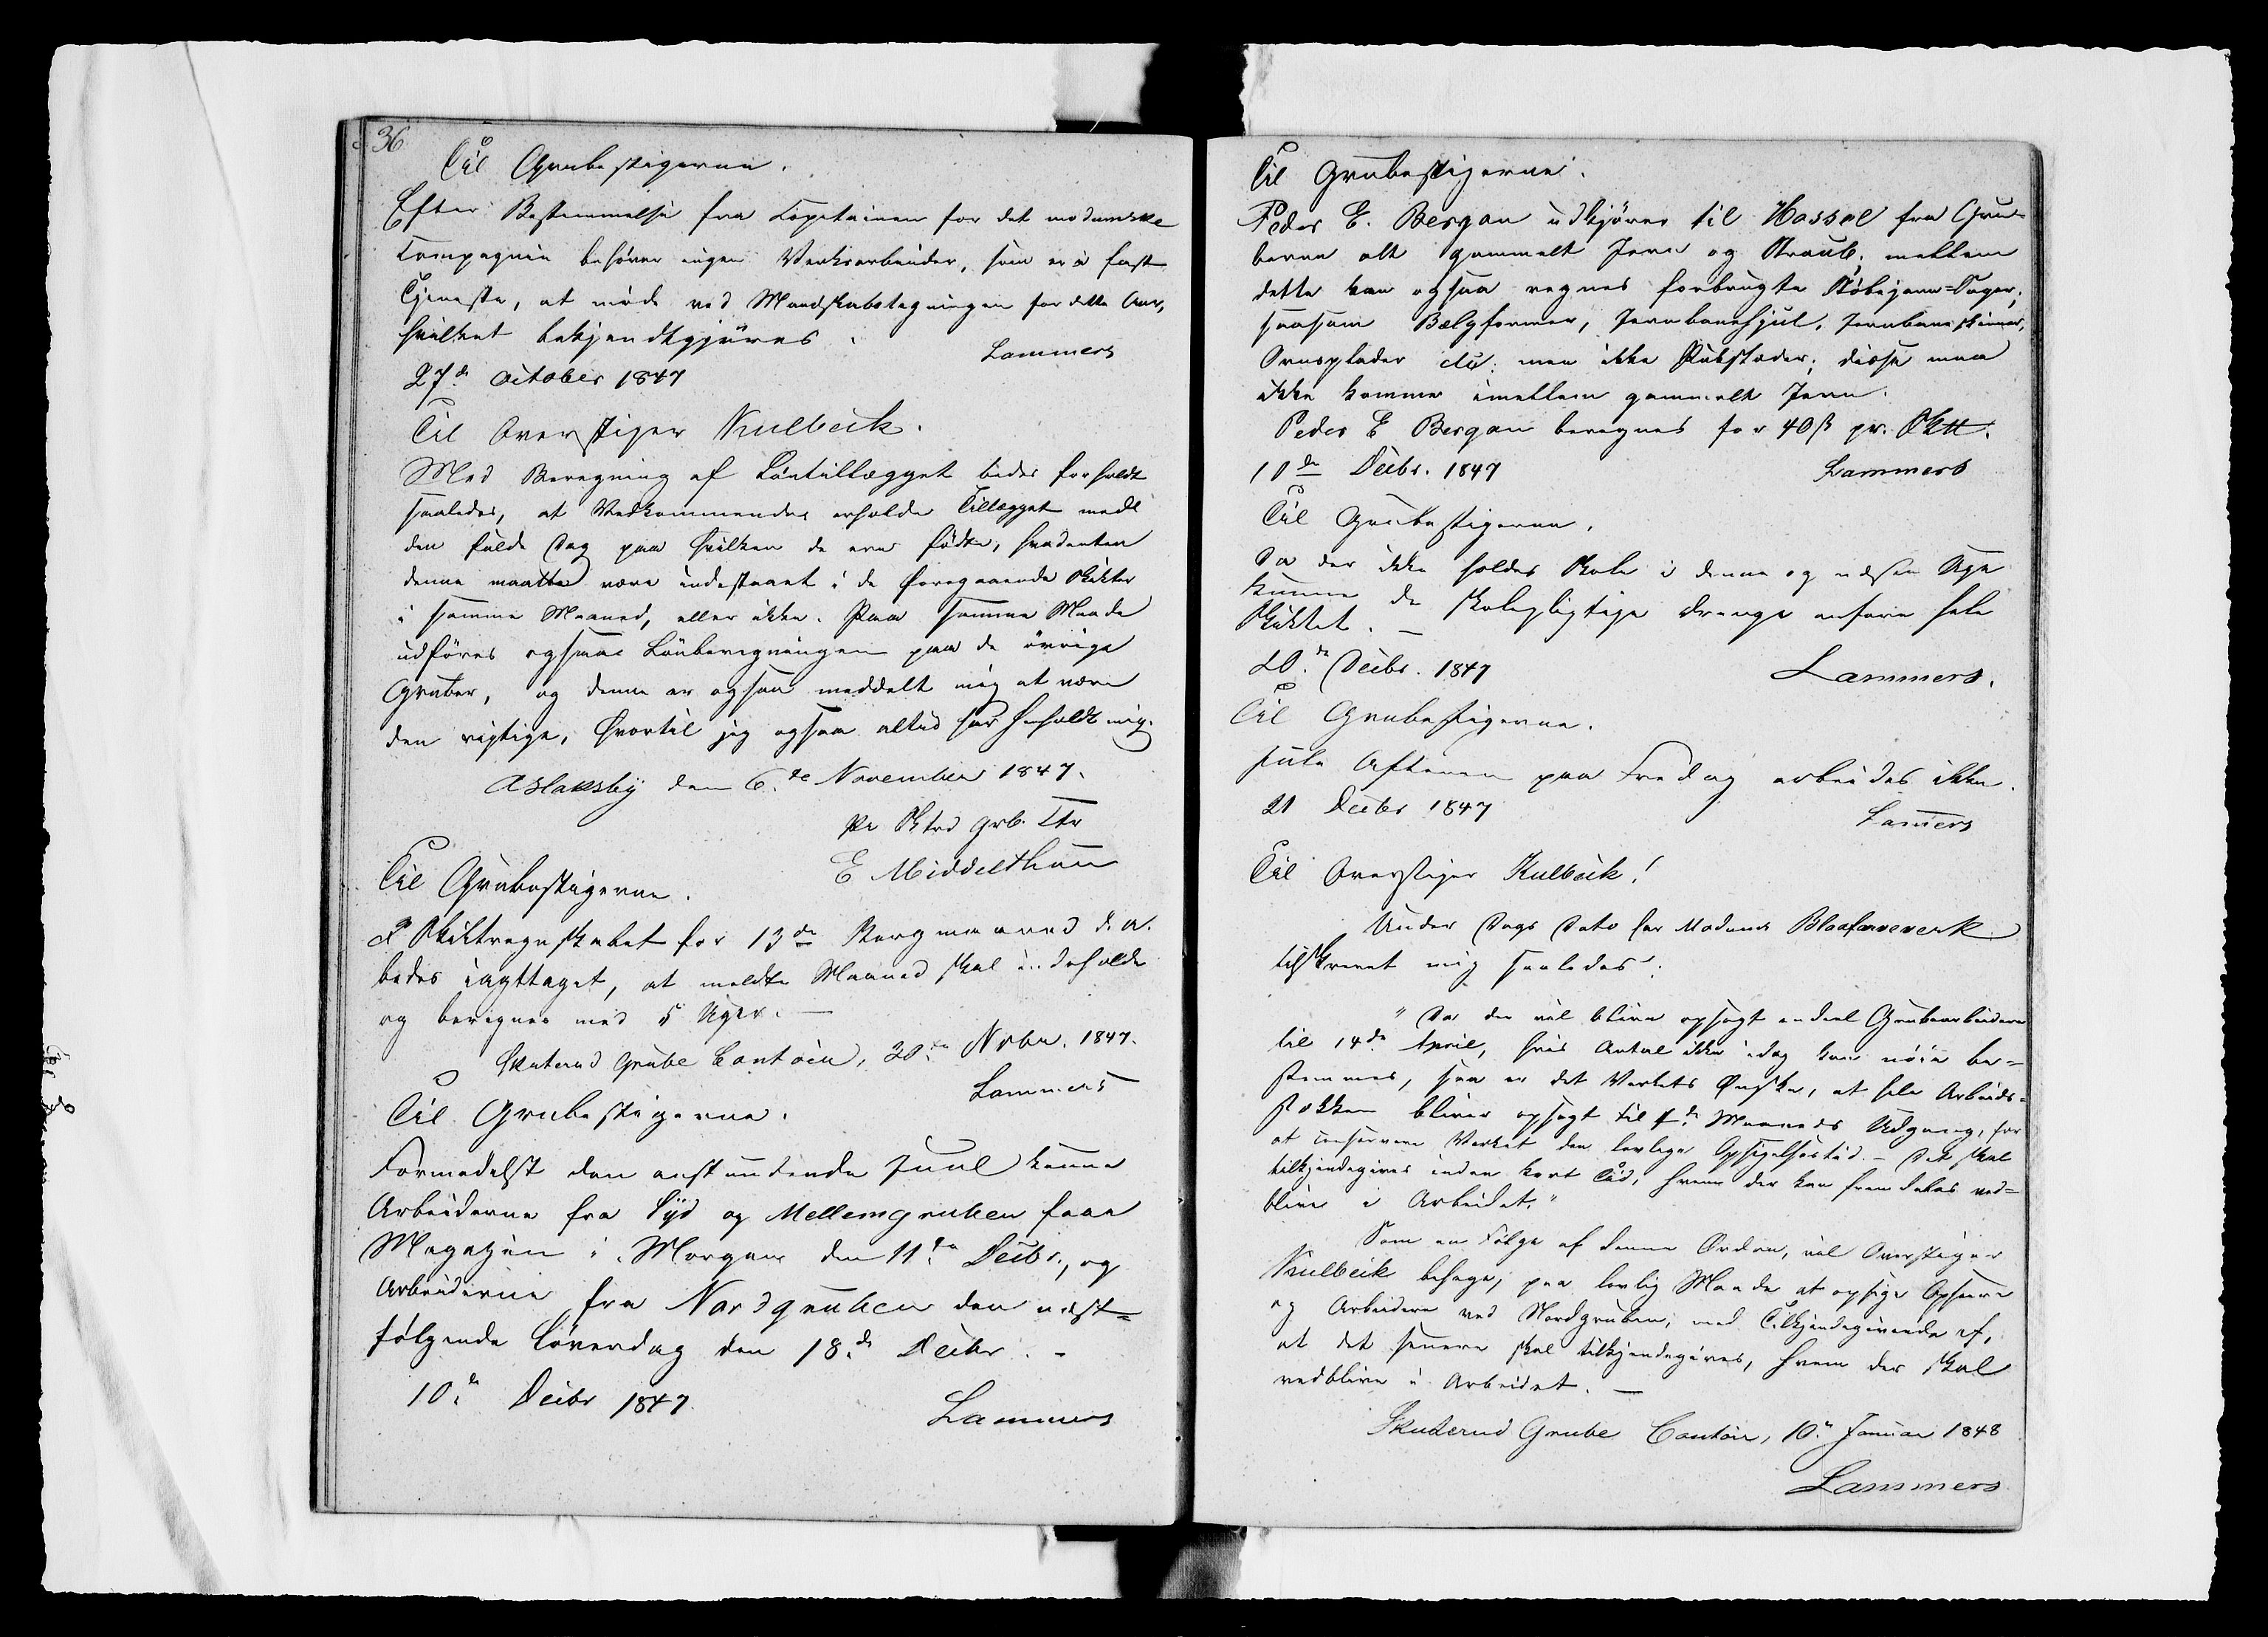 36
Til Grubestigerne.
Efter Bestemmelse fra Capitainen for det modumske
Compagnie behøver ingen Verksarbeider, som er i fast
Tjeneste, at møde ved Mandskabstegningen for dette Aar,
hvilket bekjendtgjøres.
Lammers
27de October 1847
Til Overstiger Kulbeck.
Med Beregning af Løntillægget bedes forholdt
saaledes, at Vedkommende erholde Tillægget med
den fulde Dag paa hvilken de ere fødte, hvadenten
denne maatte være indestaaet i de foregaaende Skikter
i samme Maaned, eller ikke. Paa samme Maade
udføres ogsaa Lønberegningen paa de øvrige
Gruber, og denne er ogsaa meddelt mig at være
den rigtige, hvortil jeg ogsaa altid har henholdt mig.
Aslaksby den 6te November 1847.
pr Sktrd Grb. Ctr
E Middelthun
Til Grubestigerne.
I Skiktregnskabet for 13de Bergmaaned d. A.
bedes iagttaget, at meldte Maaned skal indeholde
og beregnes med 5 Uger. —
Skuterud Grube Contoir, 30te Novbr. 1847.
Lammers
Til Grubestigerne.
Formedelst den anstundende Juul kunne
Arbeiderne fra Syd og Mellemgruben faae
Magazin i Morgen den 11te Decbr., og
Arbeiderne fra Nordgruben den næst=
følgende Løverdag den 18de Decbr. -
10de Decbr 1847
Lammers
Til Grubestigerne.
Peder E. Bergan udkjører til Hassel fra Gru=
berne alt gammelt Jern og Skraub; mellem
dette kan ogsaa regnes forbrugte Støbejern=Sager,
saasom Bælgformer, Jernbanehjul, Jernbaneskinner,
Ovnsplader etc. men ikke Pukstæder; disse maa
ikke komme imellem gammelt Jern.
Peder E Bergan beregnes for 40 ß pr. Sk℔.
10de Decbr. 1847
Lammers
Til Grubestigerne.
Da der ikke holdes Skole i denne og næste Uge
kunne de skolepligtige Drenge anfare hele
Skiktet. —
20de Decbr. 1847
Lammers.
Til Grubestigerne.
Jule Aftenen paa Fredag arbeides ikke.
21 Decbr 1847
Lamers
Til Overstiger Kulbeck!
Under Dags Dato har Modums Blaafarveverk
tilskrevet mig saaledes:
"Da der vil blive opsagt endeel Grubearbeidere
til 14de April, hvis Antal ikke idag kan nøie be=
stemmes, saa er det Verkets Ønske, at hele Arbeids=
stokken bliver opsagt til 4de Maaneds Udgang, for
at conservere Verket den lovlige Opsigelsestid. - Det skal
tilkjendegives inden kort Tid, hvem der kan fremdeles ved=
blive i Arbeidet."
Som en Følge af denne Ordre, vil Overstiger
Kulbeck behage, paa lovlig Maade at opsige Opseere
og Arbeidere ved Nordgruben, med Tilkjendegivende af,
at det senere skal tilkjendegives, hvem der skal
vedblive i Arbeidet. —
Skuterud Grube Contoir, 10de Januar 1848
Lammers